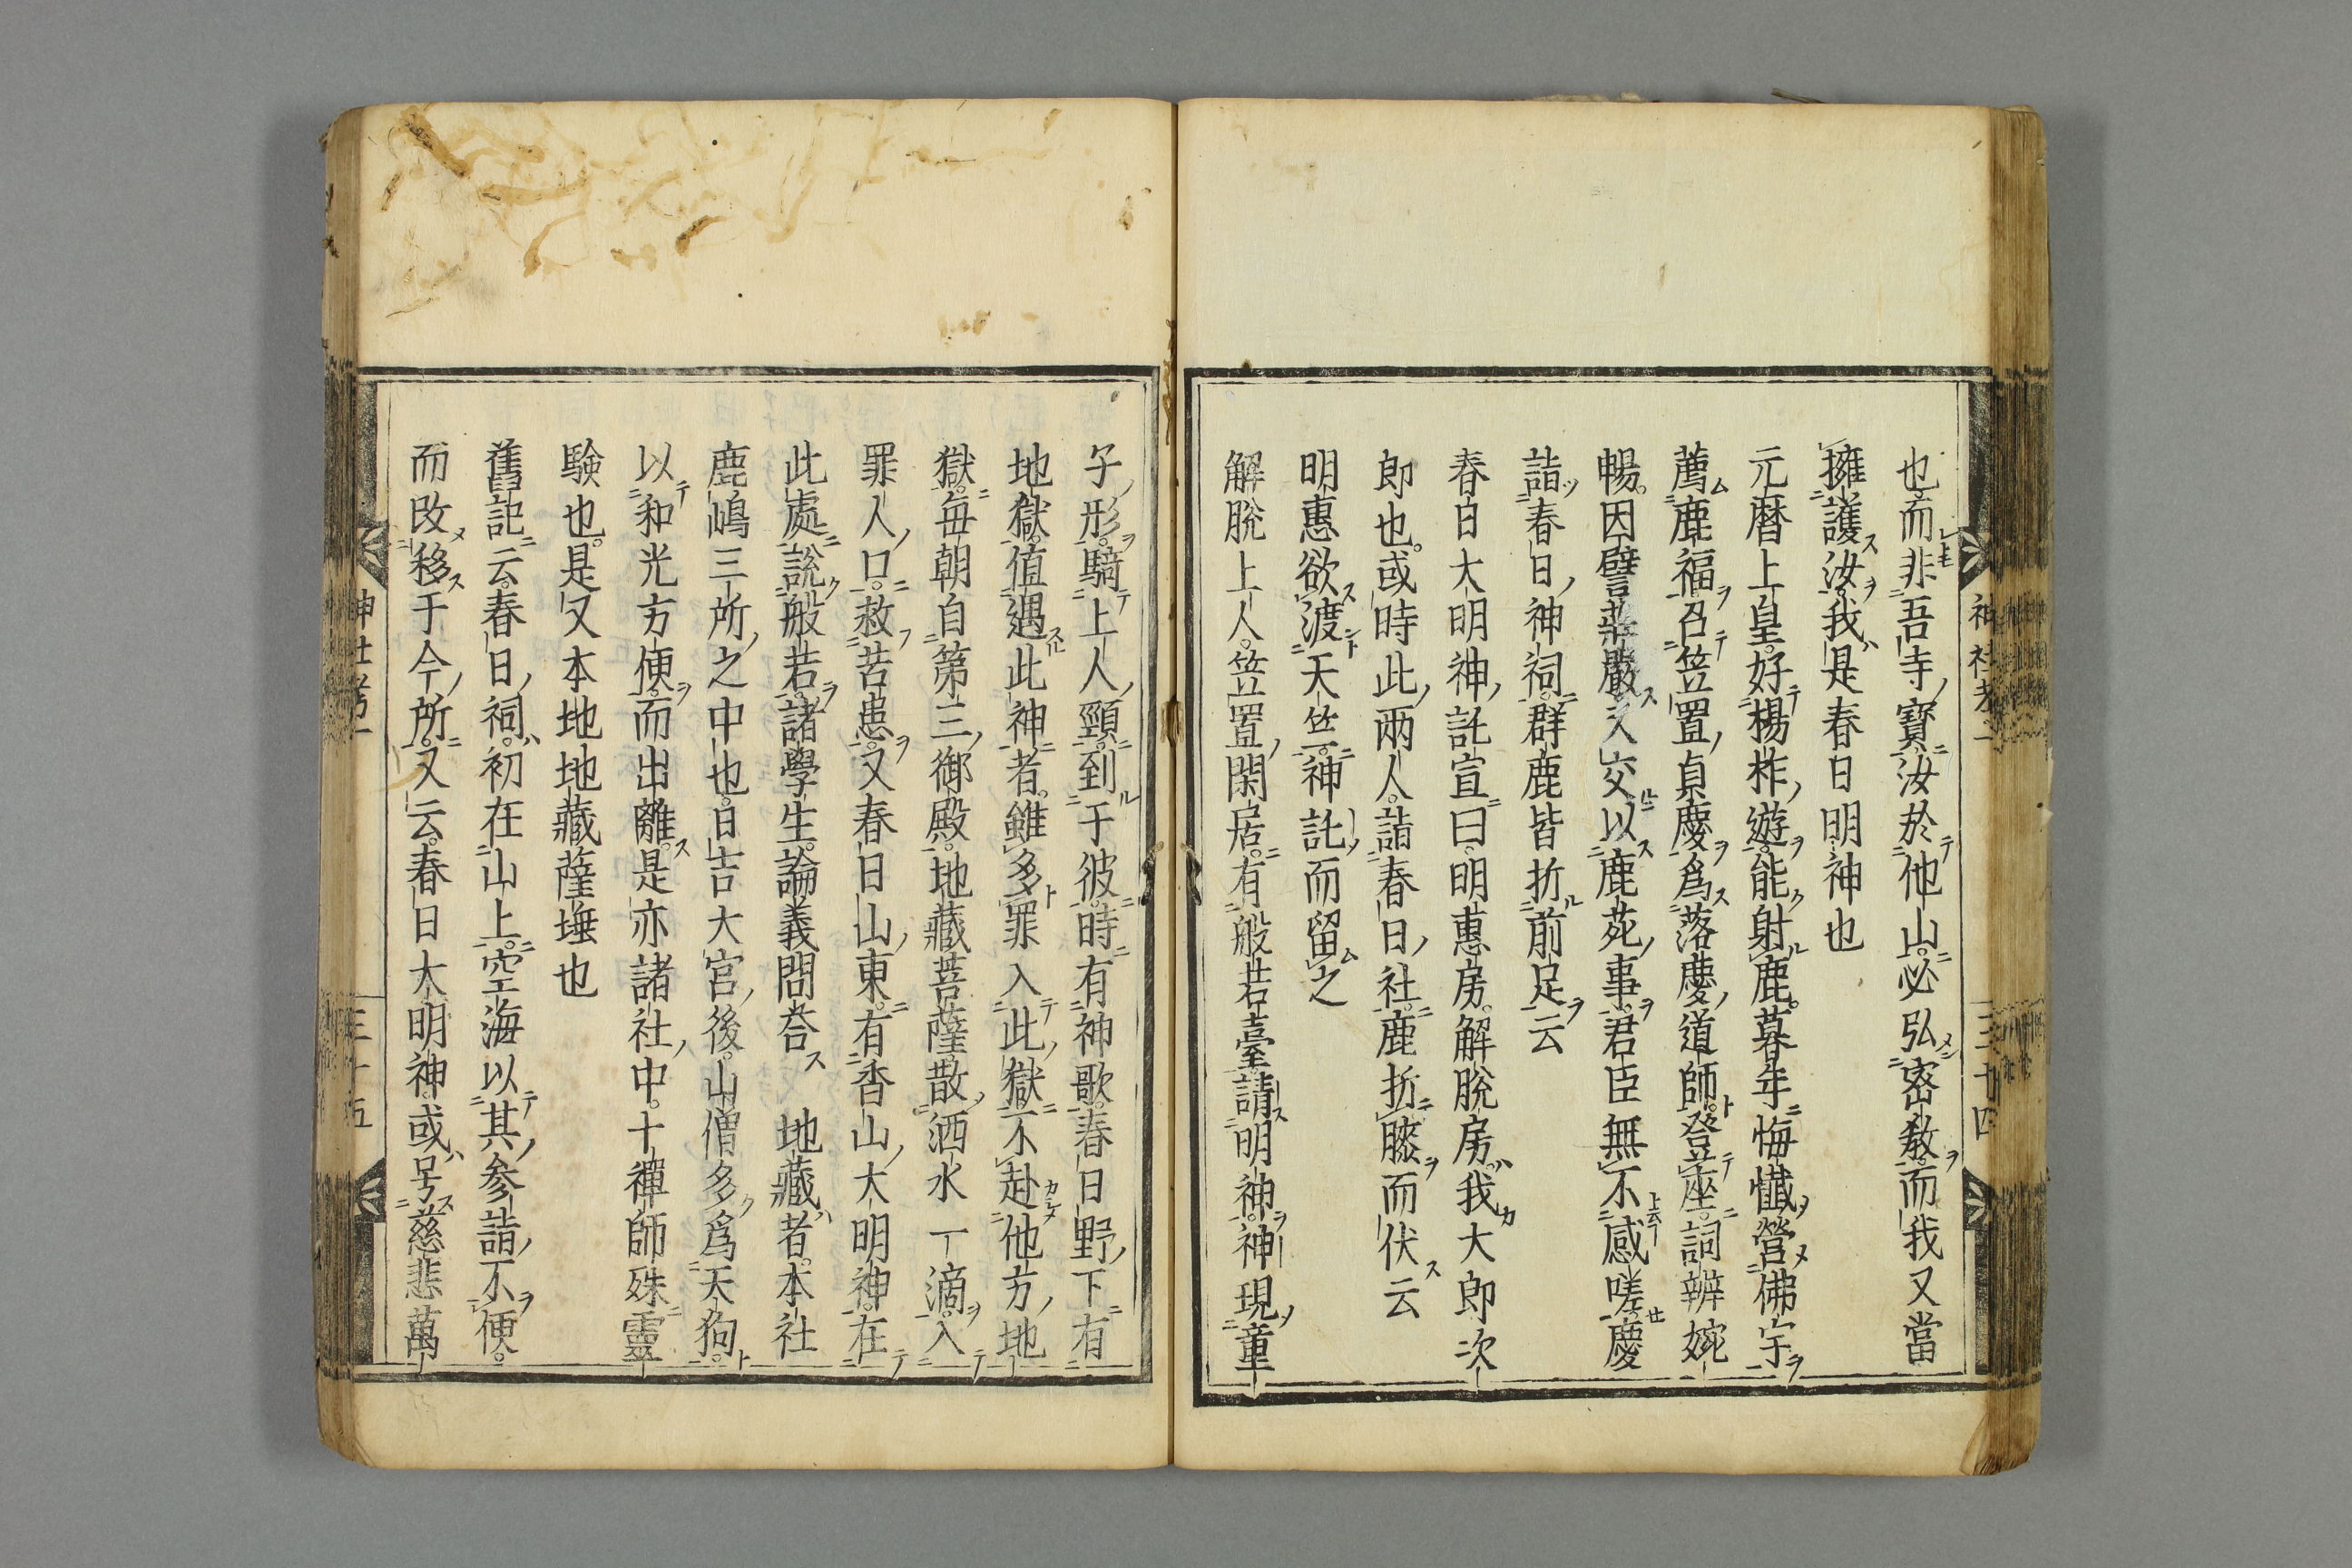 也而非吾寺寶汝於他山必弘密教而我又當
擁護汝我是春日明神也
元暦上皇好楊柞遊能射鹿暮年悔懺營佛宇
薦鹿福召笠置貞慶爲落慶道師登座詞辨婉
暢因譬莊嚴又交以鹿苑事君臣無不感嗟慶
詣春日神祠群鹿皆折前足云
春日大明神託宣曰明惠房解脱房我大郎次
郎也或時此兩人詣春日社鹿折膝而伏云
明惠欲渡天竺神託而留之
解脱上人笠置閑居有般若臺請明神神現童
神社考一
三十四
子形騎上人頸到于彼時有神歌春日野下有
地獄値遇此神者雖多罪入此獄不赴他方地
獄毎朝自第三御殿地藏菩薩散洒水一滴入
罪人口救苦患又春日山東有香山大明神在
此處説般若諸學生論義問荅 地藏者本社
鹿嶋三所之中也日吉大宮後山僧多爲天狗
以和光方便而出離是亦諸社中十禪師殊靈
驗也是又本地地藏薩埵也
舊記云春日祠初在山上空海以其參詣不便
而改移于今所又云春日大明神或号慈悲萬
神社考一
三十五